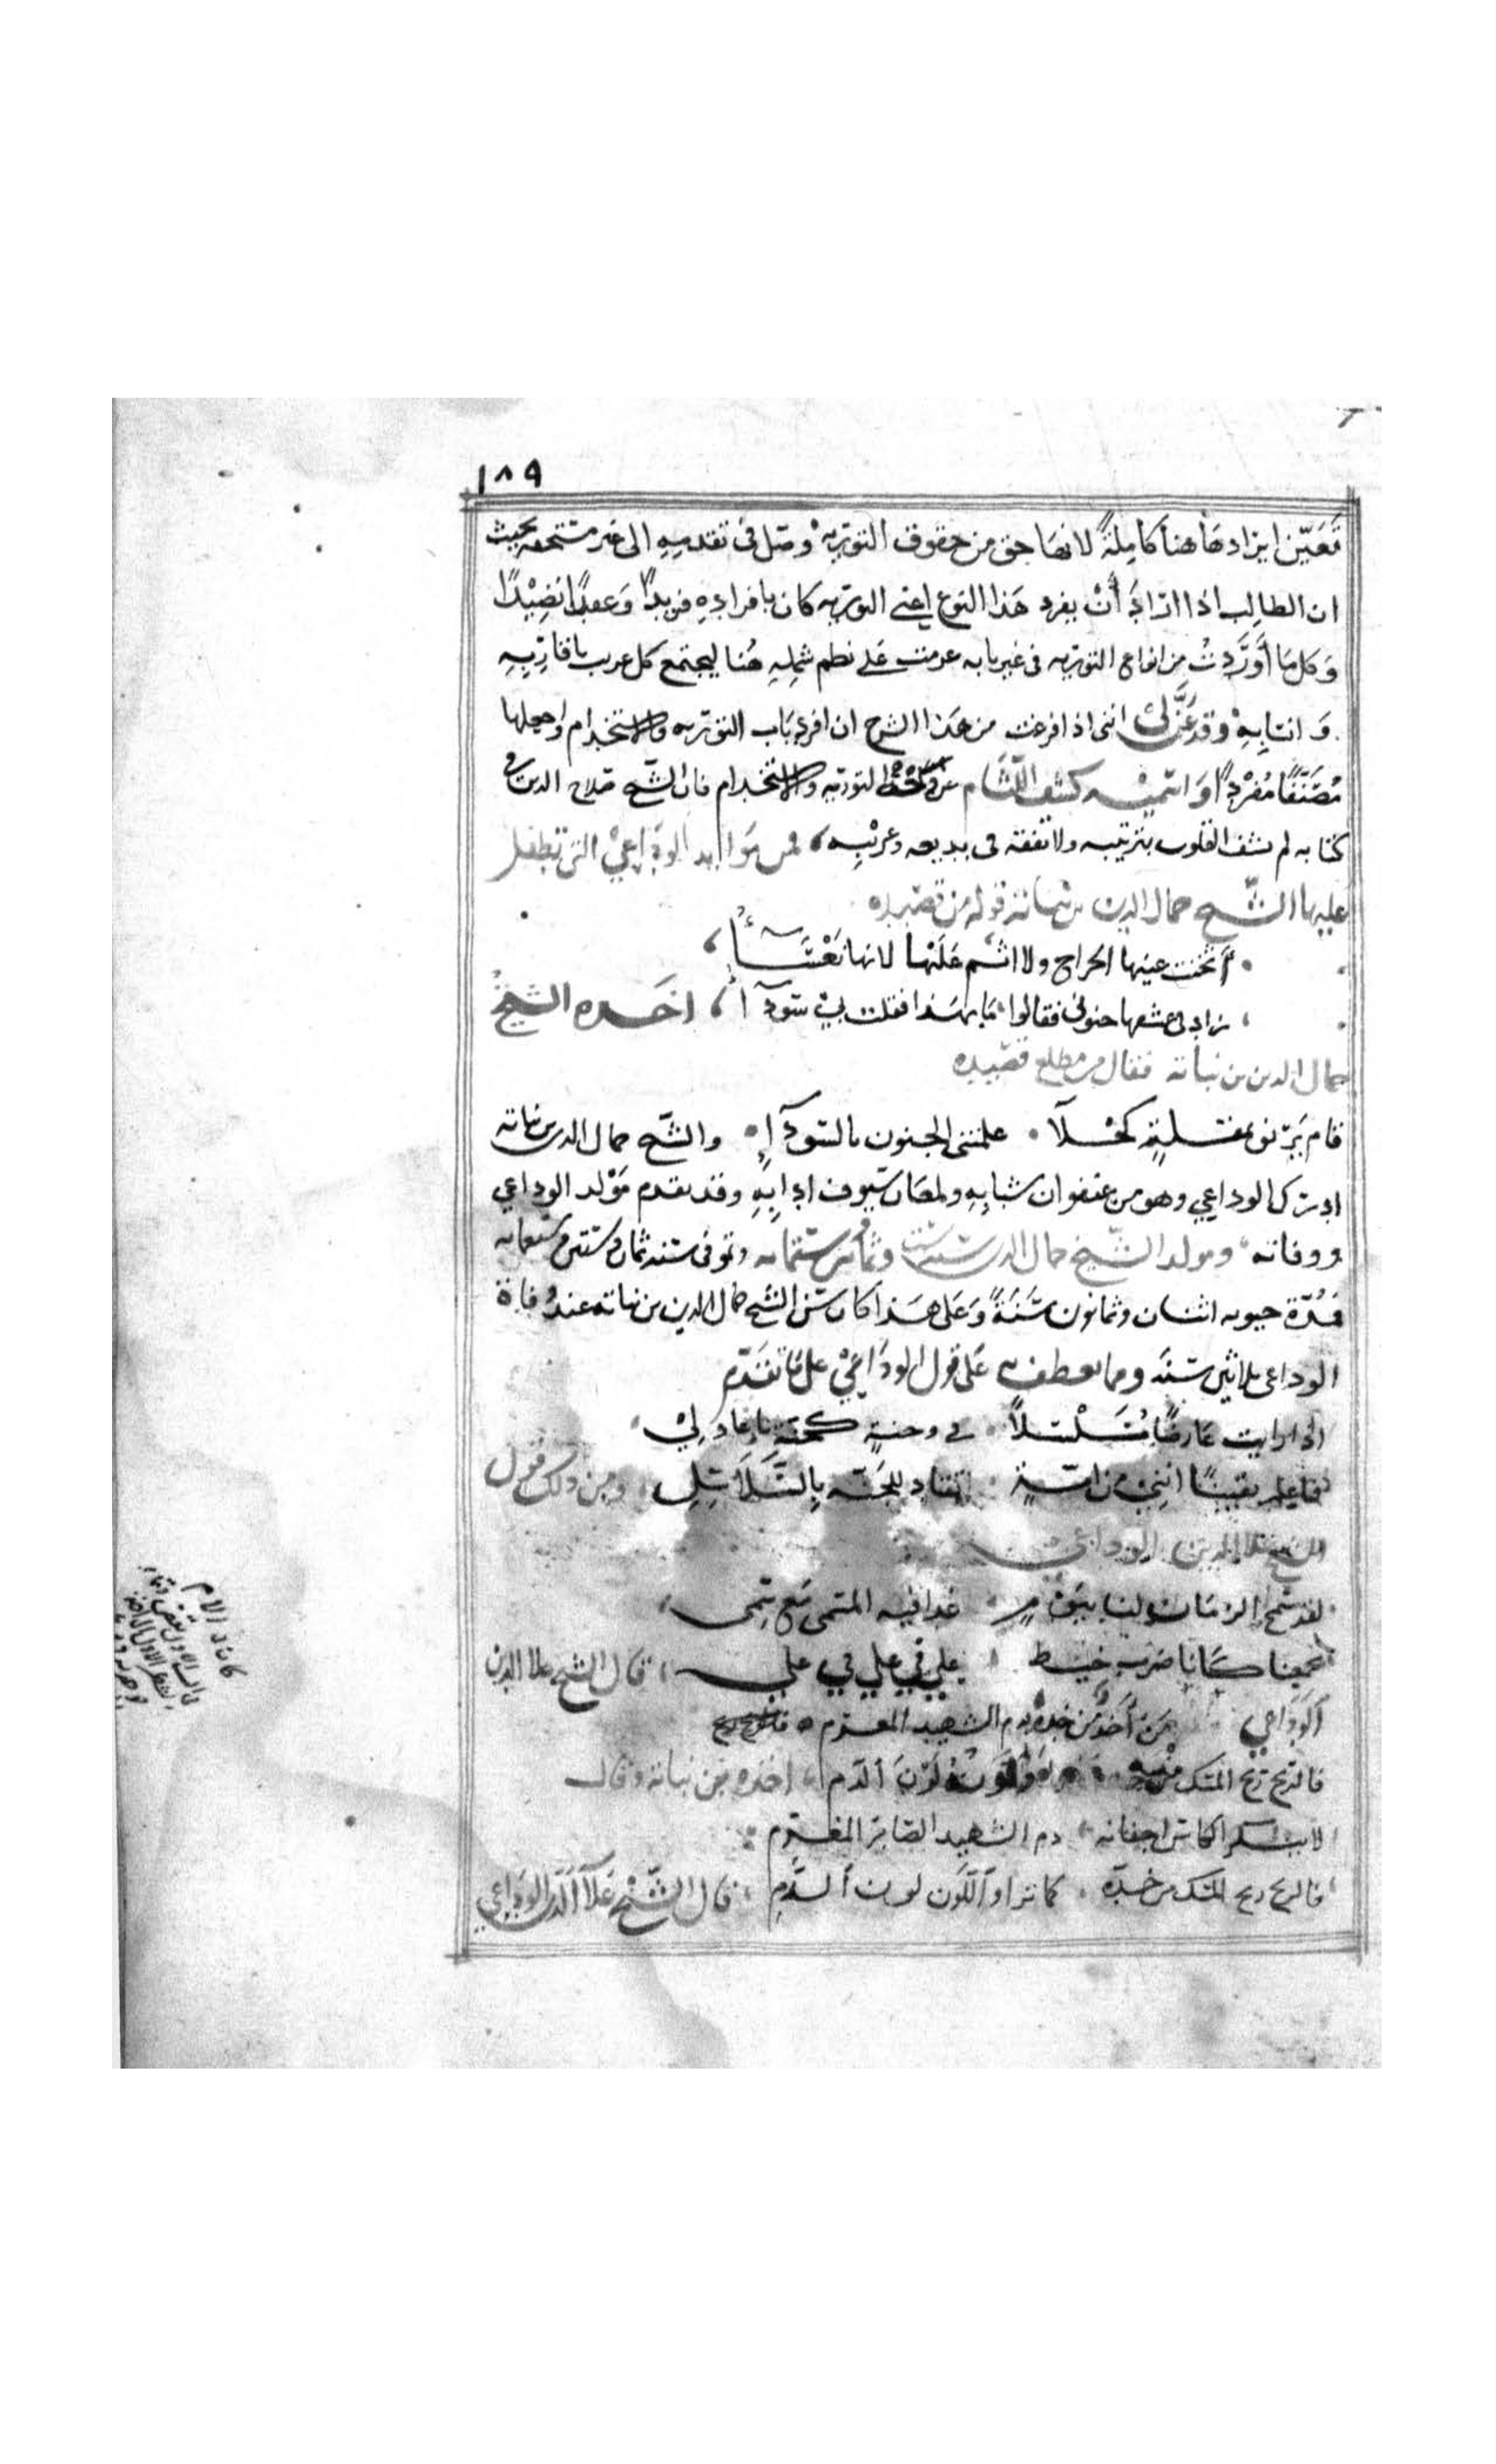 ١٨٩
فتعيّن ايرادها هنا كاملةً لانها حق من حقوق التوريه وصل في تقديمهِ الى غير مستحقه بحيث
ان الطالب اذا ارادَ أنْ يفرد هَذا النوع اعني التوريه كان بافرادِهِ فريدًا وَعقدًا نضِيْدًا
وَكل مَا أَوْرَدتُ مِن انواع التوريه في غير بابه عزمت عَلى نظم شملِهِ هُنا ليجتمع كل غريب باقاربِهِ
وَانسابِهِ وقد عَنَّ لي انني اذا فرغت من هَذا الشرح ان افرد بَاب التوريه والاستخدام واجعلها
مُصَنَّفًا مُفْرَدًا وَاسميْه كشف اللّثام عن وَجْه التوريه والاستخدام فان الشّيخ صَلاح الدين في
كتابه لم يشف القلوب بترتيبه ولا تفقه في بديعه وغريْبِه فمن مَوايد الوَداعِيْ التي تطفل
عليها الشّيخ جمال الدين بن نباتة قوله من قصَيده
أثخنت عينها الجراح ولا اثم عَلَيْها لانها نَعْسَآءُ
زاد في عشقها جنوني فقالوا مَا بهَذا فقلت بيْ سَودآءُ اخَذه الشيخُ
جمال الدين بن نباته فقال من مطلع قصَيده
قام يَرنو بمقلةٍ كحْلآ علمتني الجنون بالسّودآءِ والشّيخ جمال الدين بن نباته
ادرك الوداعي وهو من عنفوان شبابِهِ ولمعَان سُيوف ادابِهِ وقد تقدم مَوْلد الوداعي
ووفاته ومولد الشّيخ جمال الدين سنة ست وثمانين وستمايه وتوفي سنه ثمان وستين وسبعمايه
فمُدّة حيوته اثنان وثمانون سَنَةً وَعَلى هَذا كان سن الشّيخ جمال الدين بن نباته عند وفاة
الوداعي ثلاثين سَنَه ومما يعطف عَلى قول الوَداعِيْ على مَا تقدّم
اذا رايت عَارضًا مُسَلْسَلاً في وجنةٍ كجنّةٍ يا عاذِلِيْ
فاعلم يقينًا اننِي من امّةٍ تقاد للجَنّه بِالسَّلاَسِلِ ومن ذلك قول
الشيخ علا الدين الوداعي
لقد سَمح الزمَان لنا بيَوْمٍ غدا فيه المسمى مَع سمي
تجمعنا كَانا ضَرب خيط علي في علي في علي قال الشيخ علا الدين
الوَدَاعي مَن أخَذَ من خده بدم الشهيد المغرم
فالريح ريح المسك منه وَاللّون لَوْنَ الدّم اخذه ابن نباتة وقال
لا يسكر الكاس اجفانه دم الشهيد الصَابر المغرم
فالريح ريح المسك من خدّه كما ترا وَاللّون لون الدَّمِ قال الشّيْخ عَلآ الدّين الوداعي